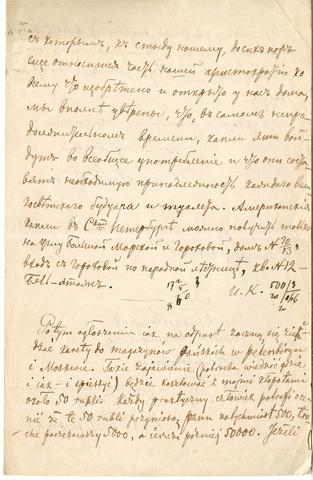 съ которымъ, къ стыду нашему, до сихъ поръ
еще относится часть нашей аристократіи ко
всему что изобрѣтено и открыто у насъ дома,
мы вполнѣ увѣрены, что, въ самомъ непро-
должительномъ времени, капли эти вой-
дутъ во всеобщее употребленіе и что они соста-
вятъ необходимую принадлежность каждаго вели-
косвѣтскаго будуара и туалета. Американскія
капли въ С Петербургѣ можно получать только
на углу Большой Морской и Гороховой, домъ № 10/13,
входъ съ Гороховой по парадной лѣстницѣ, кв. № 12
И. К.
Po tym ogłoszeniu jak na odpust zaczną się zjeż-
dżać karety do magazynów Pańskich w Petersburgu
i Moskwie. Takie zajawienie (potrzeba wiedzieć gdzie
i jak - i śpieszyć) będzie kosztować z mojmi kłopotami
około 50 rubli. Każdy praktyczny człowiek potrafi oce-
nić że te 50 rubli przyniosą panu natychmiast 500, tro-
chę poczekawszy 5000, a jeszcze później 50000. Jeżeli